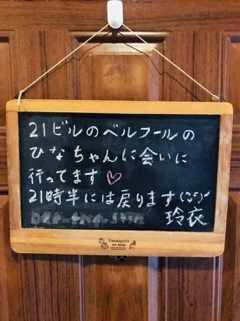 21ビルのベルフールの
ひなちゃんに会いに
行ってます♡
21時半には戻ります(^^)
玲衣